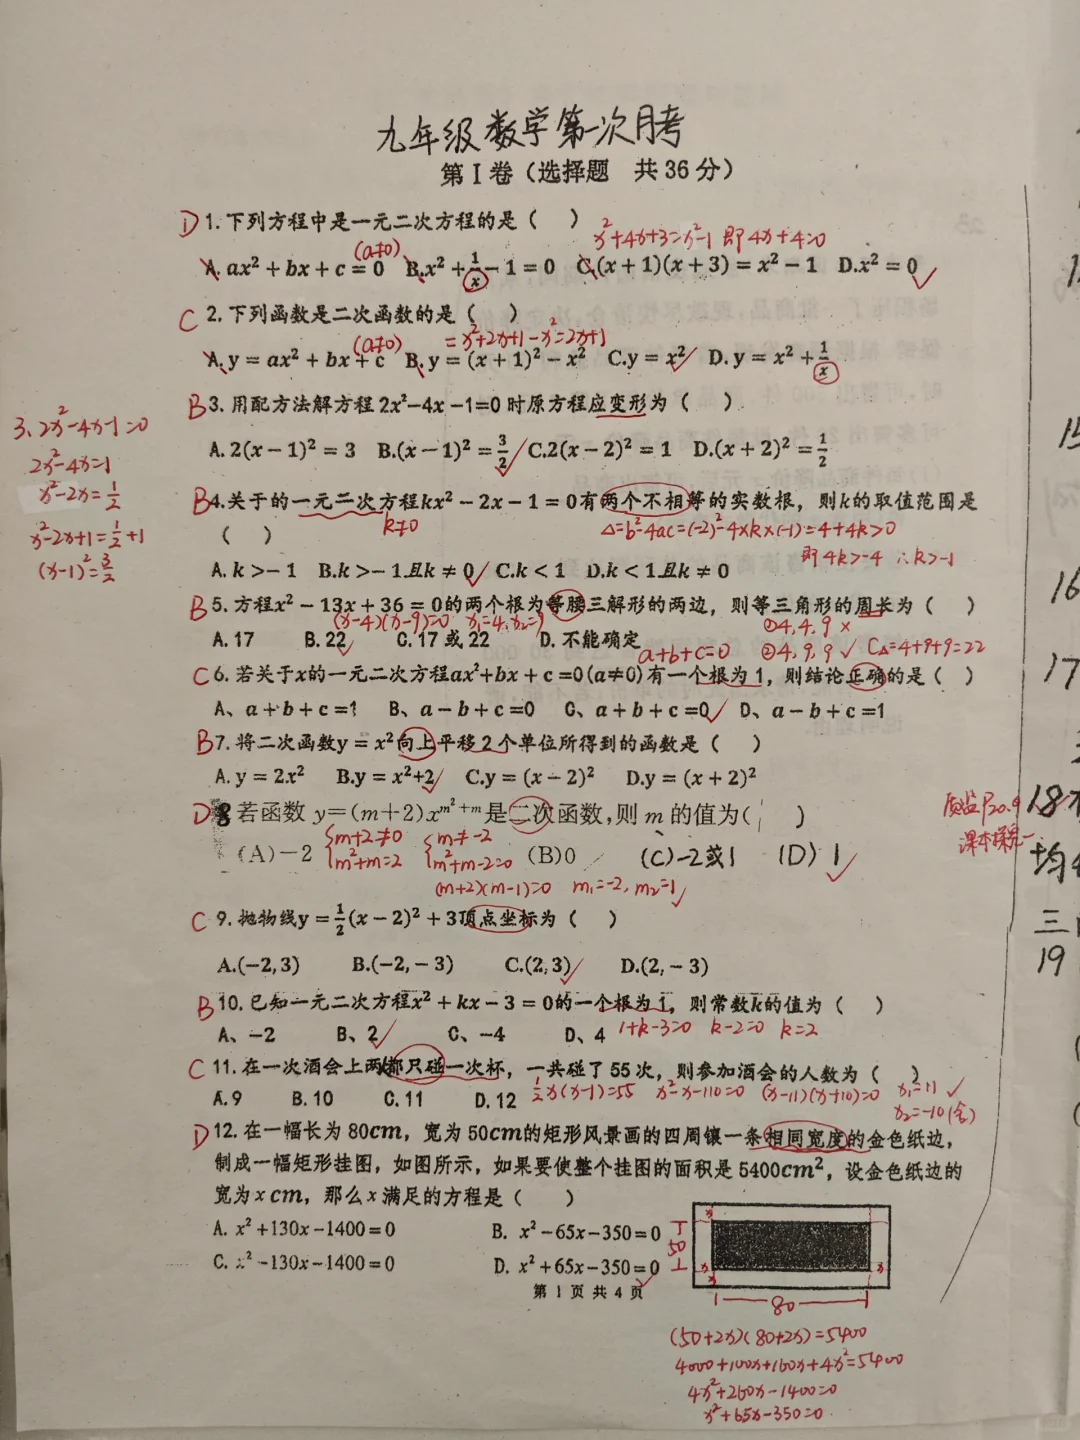 九年级数学第一次月考
第Ⅰ卷（选择题 共36分）
D 1.下列方程中是一元二次方程的是（ ）
x²+4x+3=x²-1 即4x+4=0
(a≠0)
A.ax²+bx+c=0 B.x²+1/x-1=0 C.(x+1)(x+3)=x²-1 D.x²=0✓
C 2.下列函数是二次函数的是（ ）
(a≠0) =x²+2x+1-x²=2x+1
A.y=ax²+bx+c B.y=(x+1)²-x² C.y=x²✓ D.y=x²+1/x
B 3.用配方法解方程2x²-4x-1=0时原方程应变形为（ ）
A.2(x-1)²=3 B.(x-1)²=3/2✓ C.2(x-2)²=1 D.(x+2)²=1/2
3、2x²-4x-1=0
2x²-4x=1
x²-2x=1/2
x²-2x+1=1/2+1
(x-1)²=3/2
B 4.关于的一元二次方程kx²-2x-1=0有两个不相等的实数根，则k的取值范围是
（ ） k≠0 Δ=b²-4ac=(-2)²-4×k×(-1)=4+4k>0
即4k>-4 ∴k>-1
A.k>-1 B.k>-1且k≠0✓ C.k<1 D.k<1且k≠0
B 5.方程x²-13x+36=0的两个根为等腰三解形的两边，则等三角形的周长为（ ）
(x-4)(x-9)=0 x₁=4,x₂=9 ①4,4,9 ×
A.17 B.22✓ C.17或22 D.不能确定
a+b+c=0 ②4,9,9 ✓ C△=4+9+9=22
C 6.若关于x的一元二次方程ax²+bx+c=0(a≠0)有一个根为1，则结论正确的是（ ）
A、a+b+c=1 B、a-b+c=0 C、a+b+c=0✓ D、a-b+c=1
B 7.将二次函数y=x²向上平移2个单位所得到的函数是（ ）
A.y=2x² B.y=x²+2✓ C.y=(x-2)² D.y=(x+2)²
D 8 若函数 y=(m+2)x^(m²+m)是二次函数,则m的值为( )
(A)-2 {m+2≠0 m²+m=2 {m≠-2 m²+m-2=0 (B)0 (C)-2或1 (D)1✓
(m+2)(m-1)=0 m₁=-2, m₂=1✓
C 9.抛物线y=1/2(x-2)²+3顶点坐标为（ ）
A.(-2,3) B.(-2,-3) C.(2,3)✓ D.(2,-3)
B 10.已知一元二次方程x²+kx-3=0的一个根为1，则常数k的值为（ ）
A、-2 B、2✓ C、-4 D、4 1+k-3=0 k-2=0 k=2
C 11.在一次酒会上两人都只碰一次杯，一共碰了55次，则参加酒会的人数为（ ）
A.9 B.10 C.11 D.12 1/2x(x-1)=55 x²-x-110=0 (x-11)(x+10)=0 x₁=11 ✓
x₂=-10(舍)
D 12.在一幅长为80cm，宽为50cm的矩形风景画的四周镶一条相同宽度的金色纸边，
制成一幅矩形挂图，如图所示，如果要使整个挂图的面积是5400cm²，设金色纸边的
宽为x cm，那么x满足的方程是（ ）
A. x²+130x-1400=0 B. x²-65x-350=0
C. x²-130x-1400=0 D. x²+65x-350=0✓
第 1 页 共 4 页
x
x
x
x
50
80
(50+2x)(80+2x)=5400
4000+100x+160x+4x²=5400
4x²+260x-1400=0
x²+65x-350=0
15
16
17
质监P20.9
课本探究一
18
均
三
19